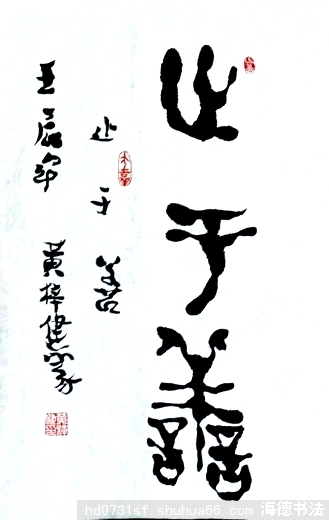 止于善
止于善
壬辰年
黄梓健篆
hd0731sf.shuhua66.com 海德书法